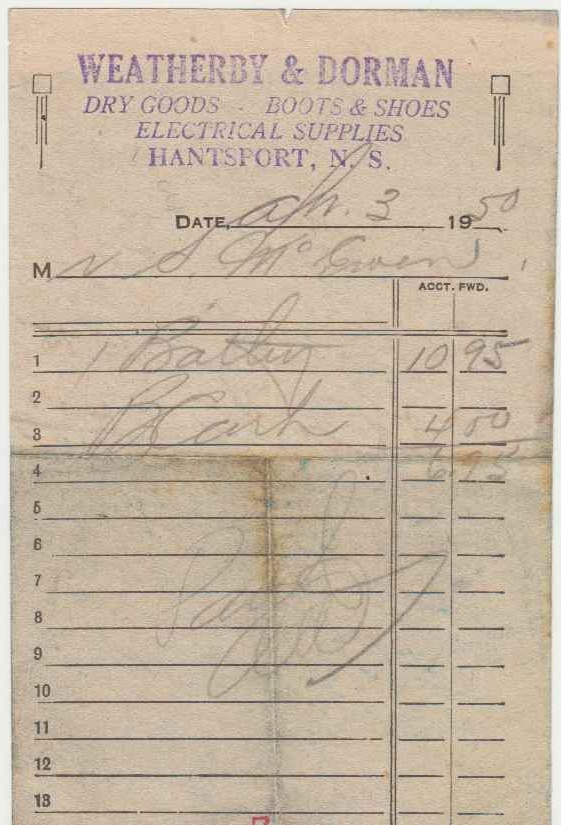 WEATHERBY & DORMAN
DRY GOODS - BOOTS & SHOES
ELECTRICAL SUPPLIES
HANTSPORT, N. S.
DATE, Apr. 3 1950
M N S. McEwen
ACCT. FWD.
1 1 Battery 10 95
2
3 By Cash 4 00
4 6 95
5
6
7 Paid
8
9
10
11
12
13